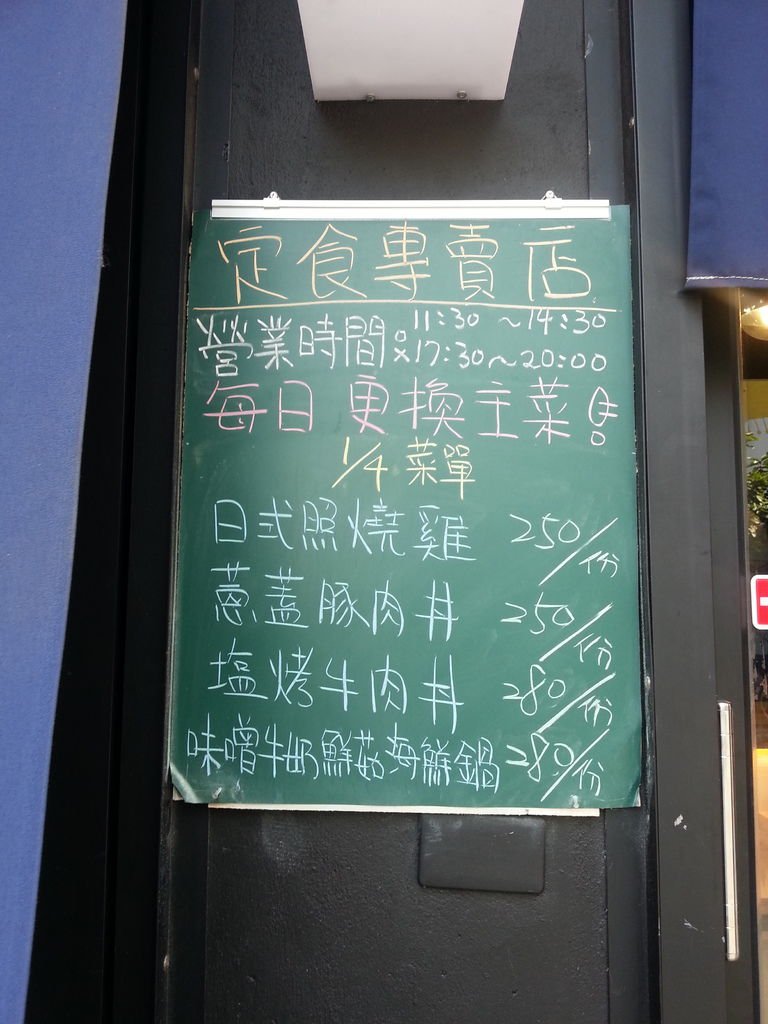 定食專賣店
營業時間：11:30～14:30
17:30～20:00
每日更換主菜！
1/4 菜單
日式照燒雞 250/份
蔥蓋豚肉丼 250/份
塩烤牛肉丼 280/份
味噌牛奶鮮菇海鮮鍋 280/份